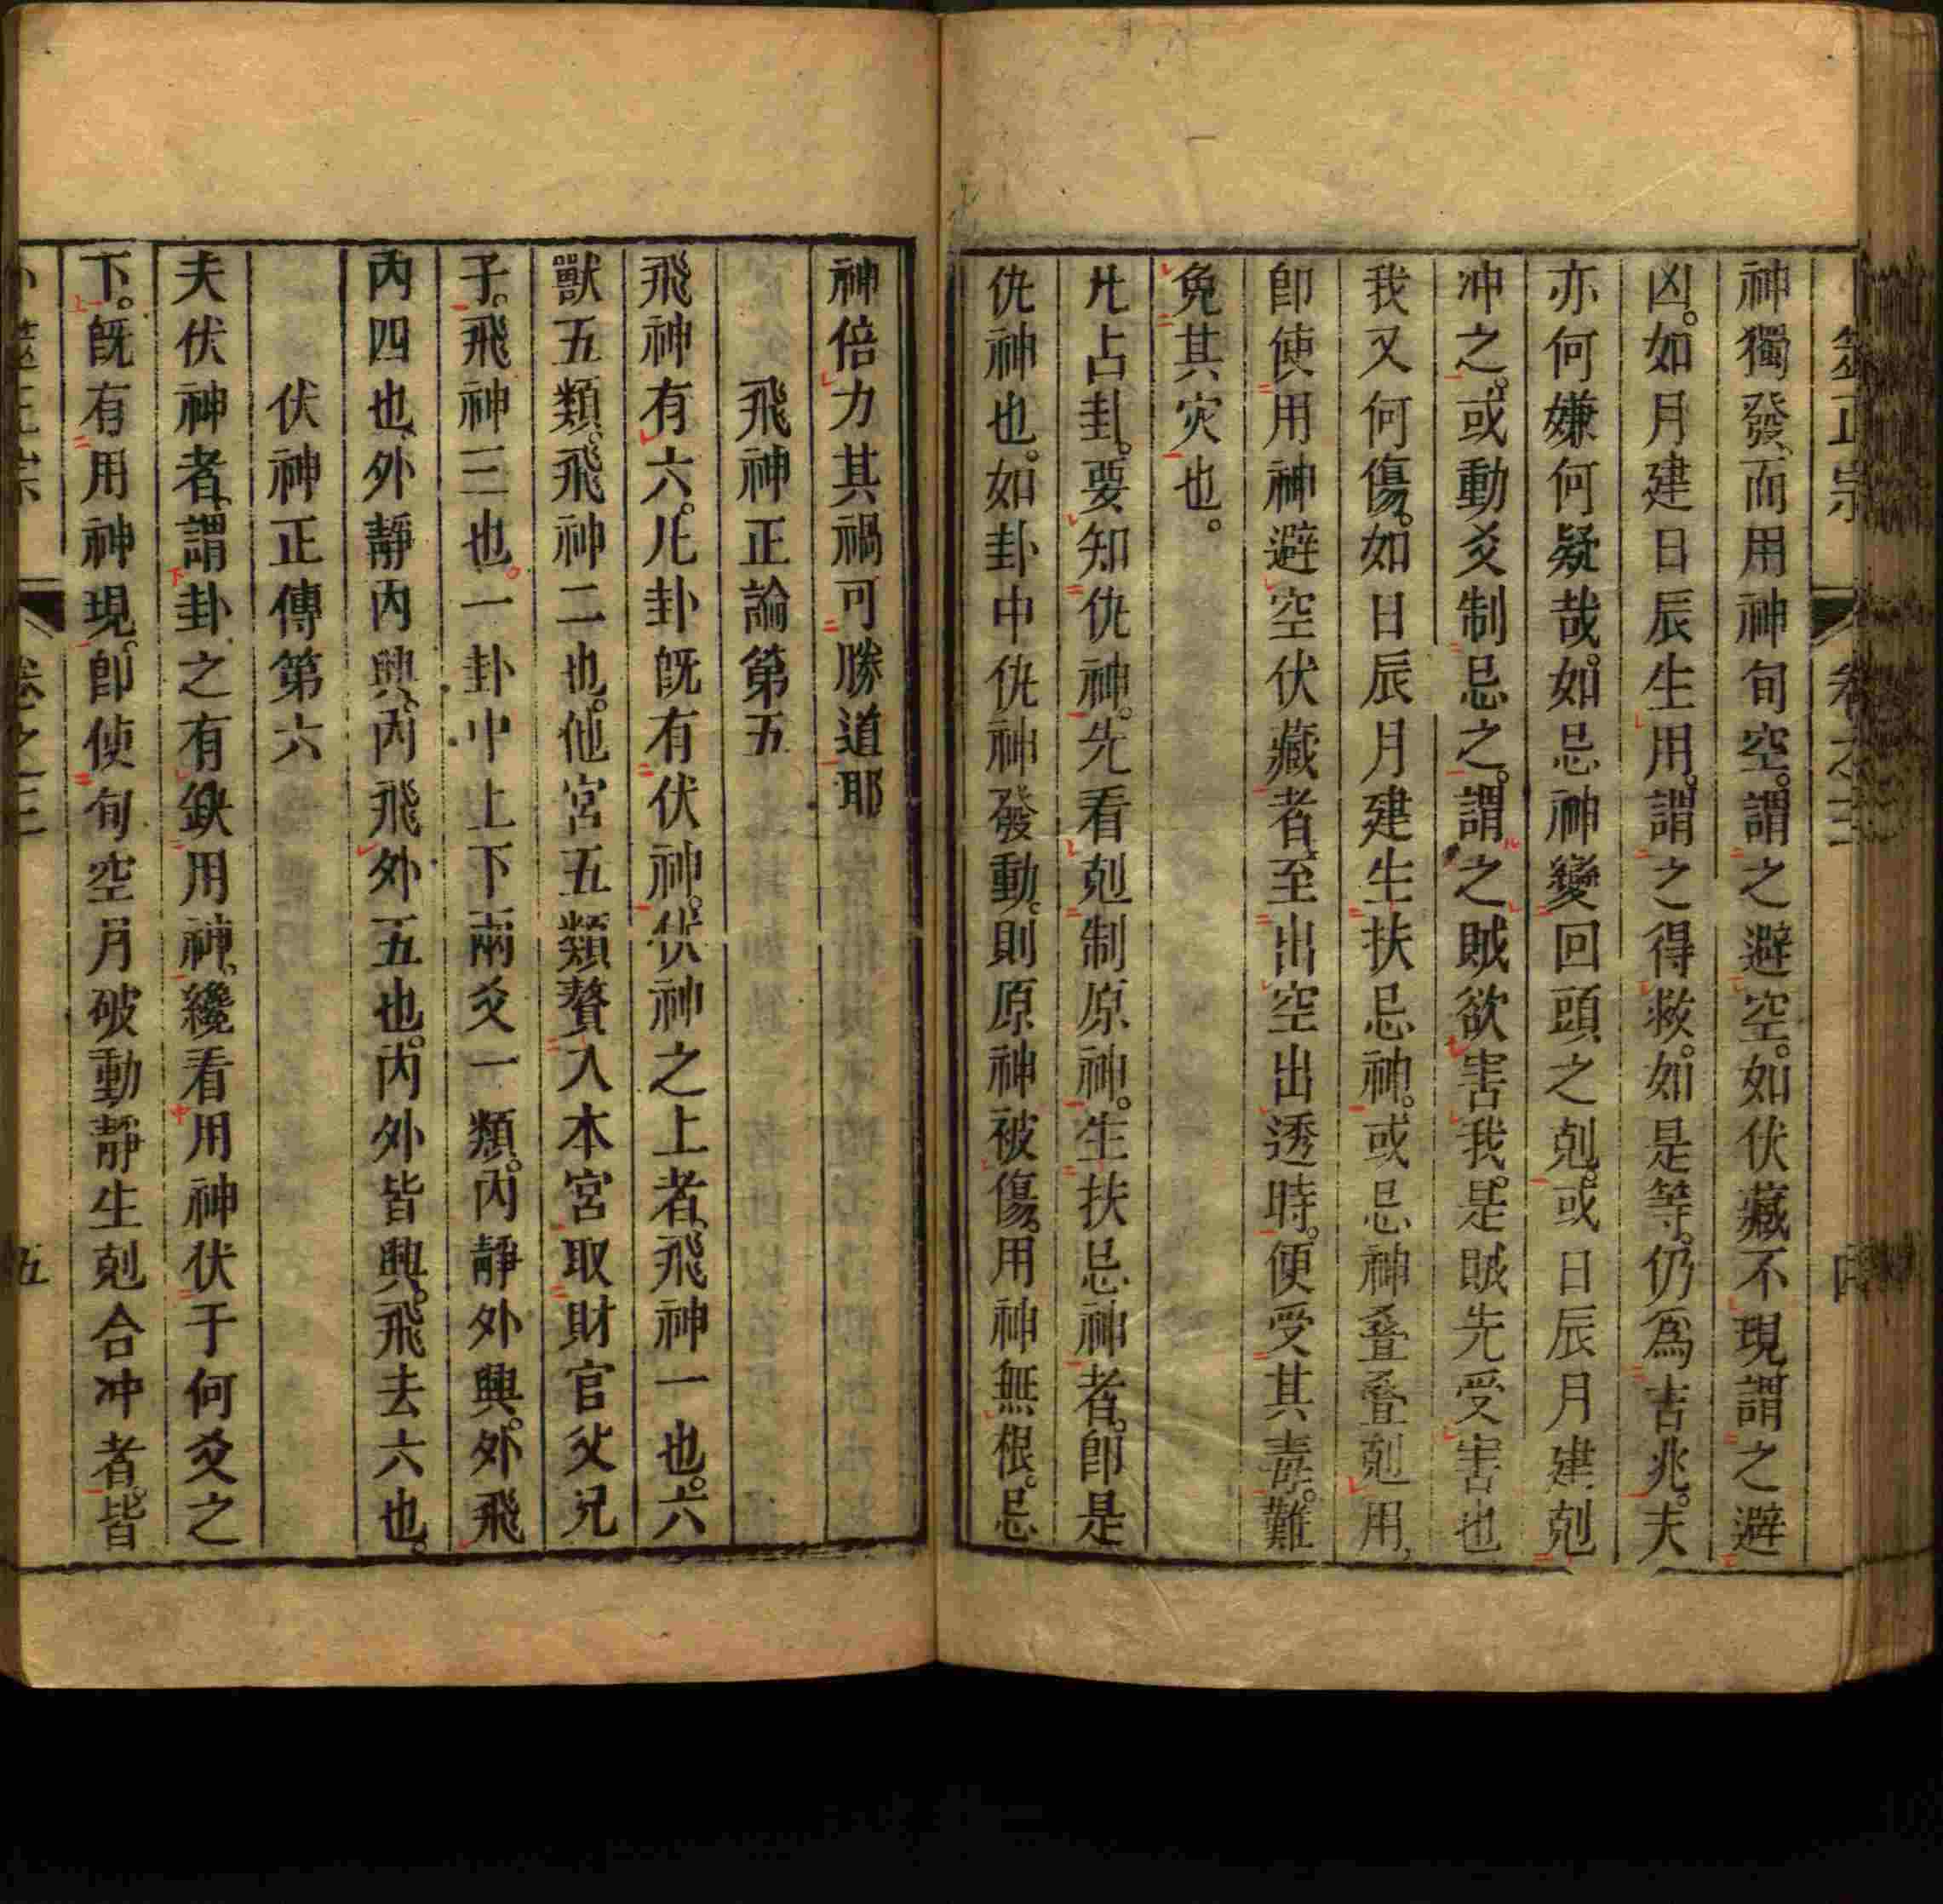 筮正宗 卷之三 四
神獨發、而用神旬空。謂之避空。如伏藏不現、謂之避
凶。如月建日辰生用。謂之得救。如是等。仍爲吉兆。夫
亦何嫌何疑哉。如忌神變回頭之剋。或日辰月建剋
冲之。或動爻制忌之。謂之賊欲害我。是賊先受害也
我又何傷。如日辰月建生扶忌神。或忌神叠叠剋用、
卽使用神避空伏藏者、至出空出透時。便受其毒。難
免其灾也。
凡占卦。要知仇神。先看剋制原神。生扶忌神者。卽是
仇神也。如卦中仇神發動。則原神被傷。用神無根。忌
神倍力其禍可勝道耶
飛神正論第五
飛神有六。凡卦旣有伏神。伏神之上者、飛神一也。六
獸五類。飛神二也。他宮五類贅入本宮取財官父兄
子。飛神三也。一卦中上下兩爻一類。內靜外興。外飛
內四也、外靜內興、內飛外五也。內外皆興。飛去六也。
伏神正傳第六
夫伏神者、謂卦之有缺用神、纔看用神伏于何爻之
下。旣有用神現。卽使旬空月破動靜生剋合冲者。皆
卜筮正宗 卷之三 五